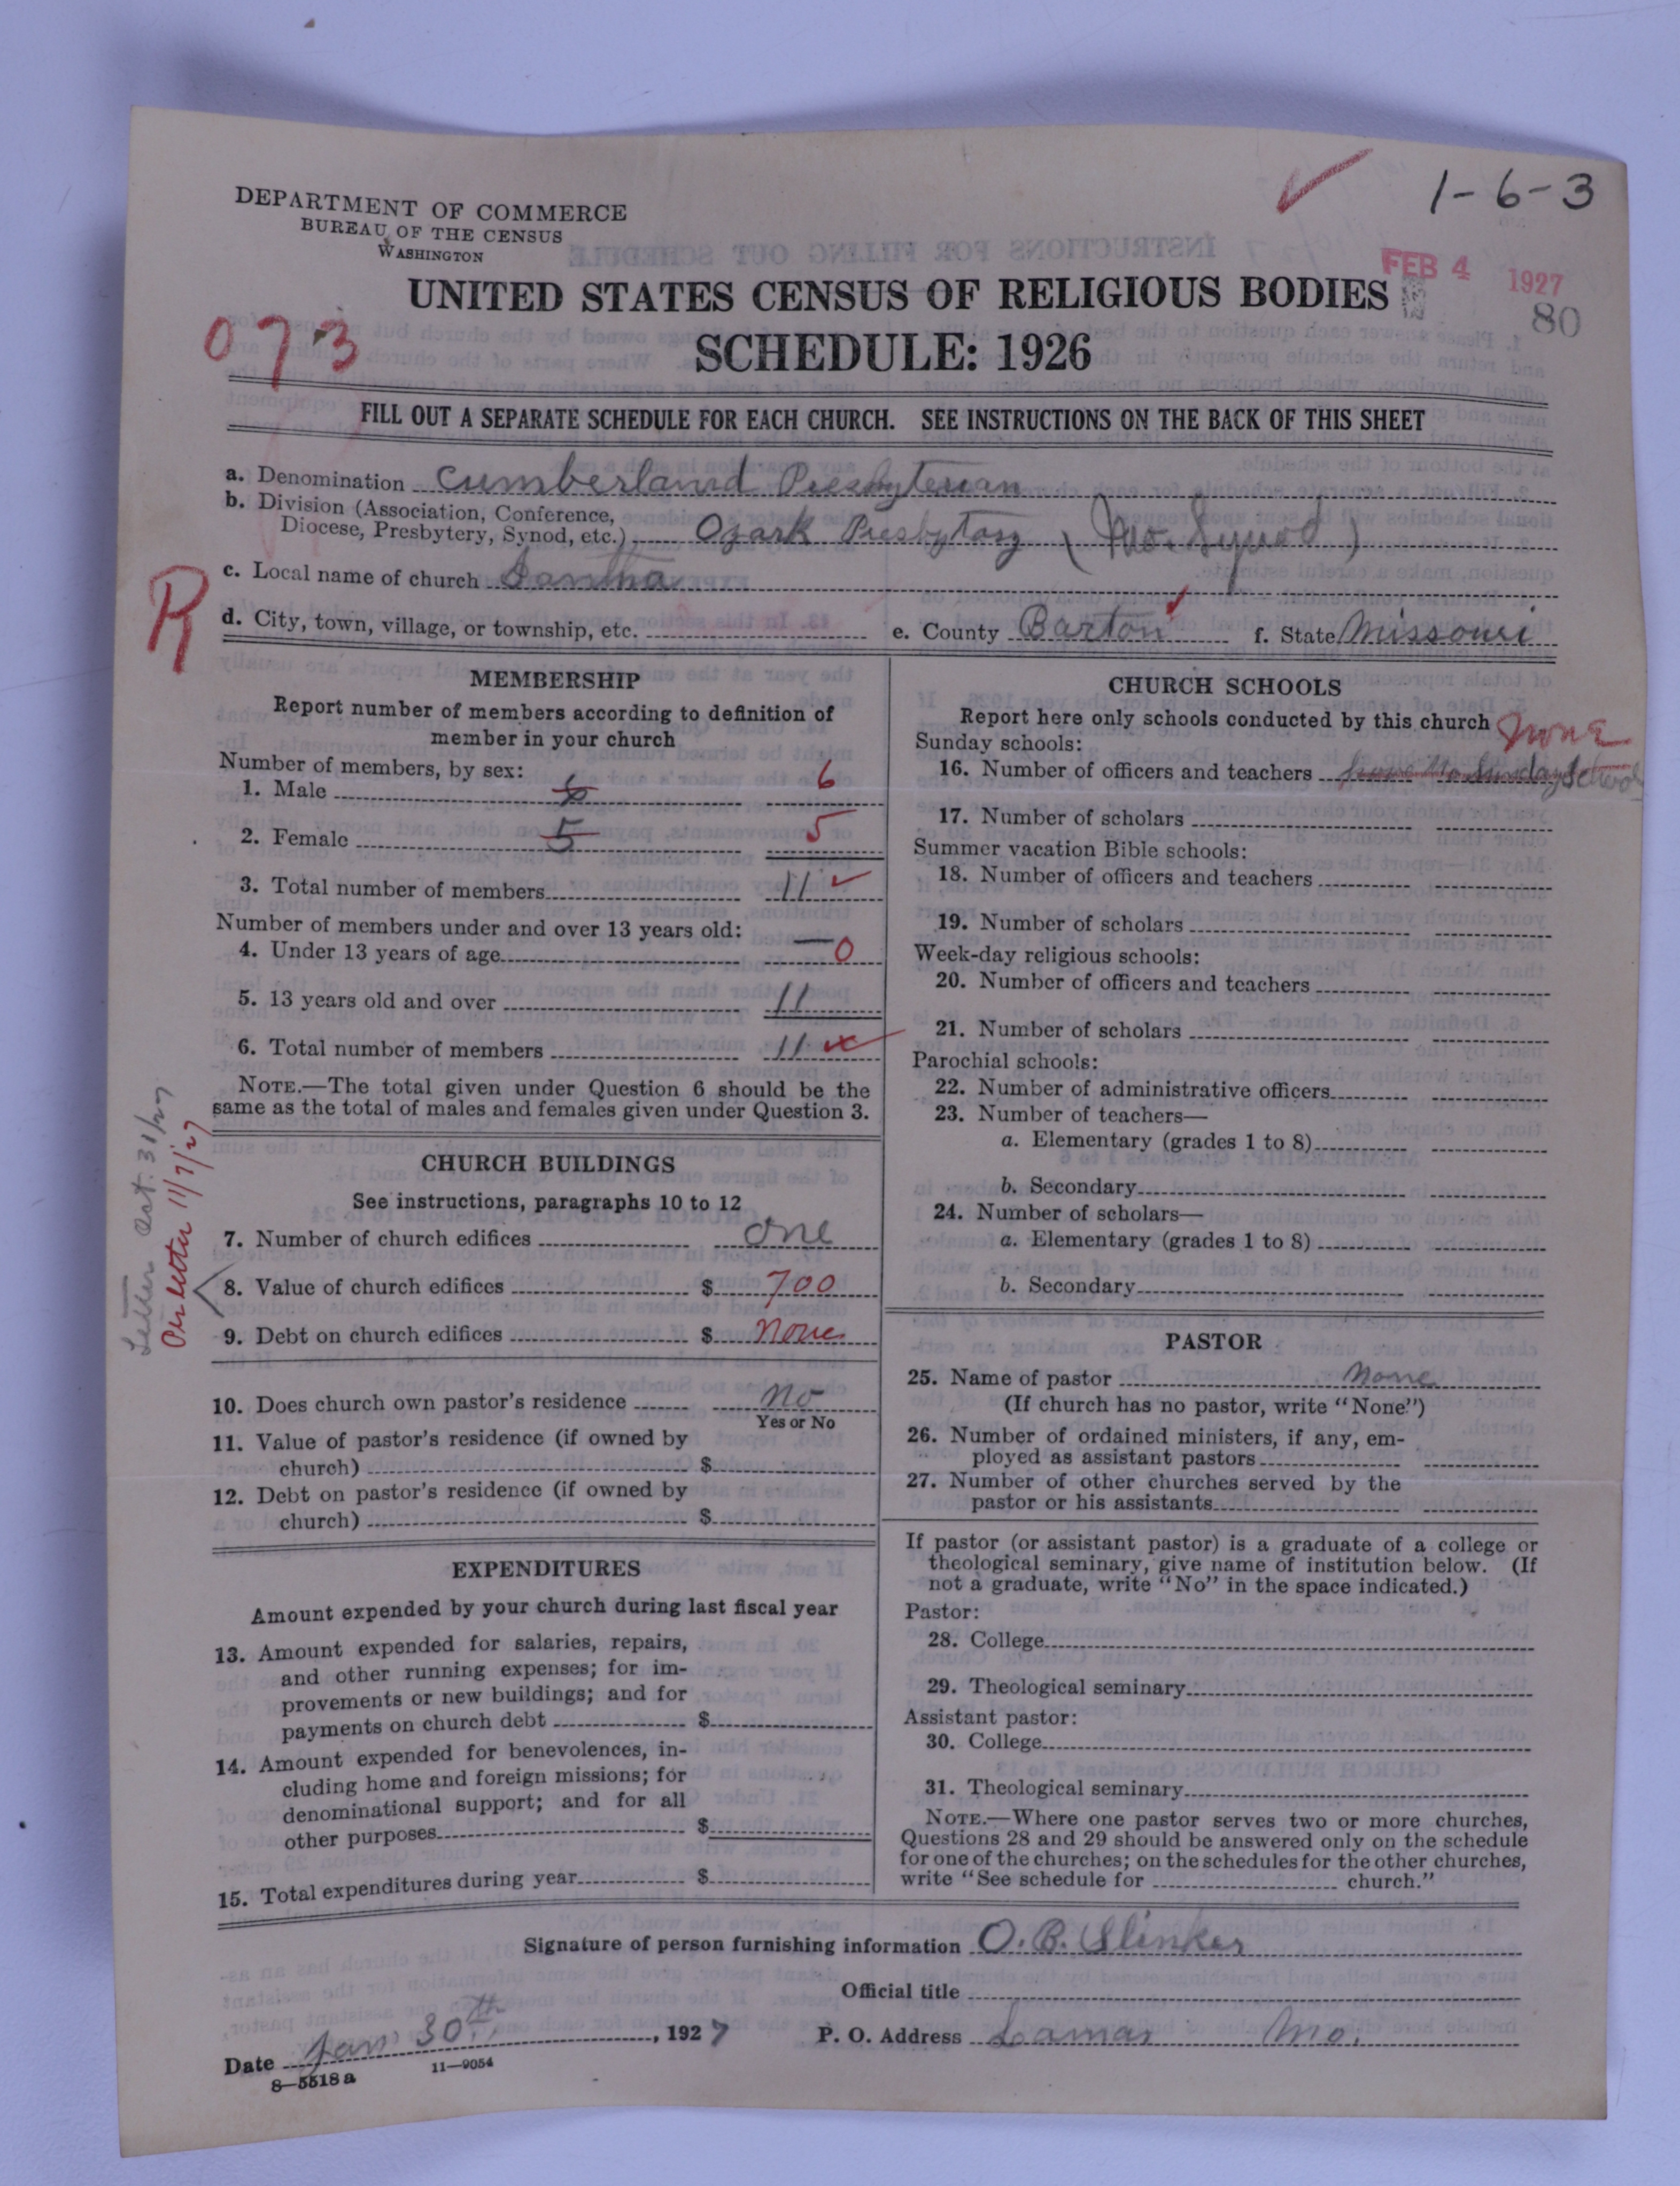 1-6-3
DEPARTMENT OF COMMERCE
BUREAU OF THE CENSUS
WASHINGTON
FEB 4 1927
80
UNITED STATES CENSUS OF RELIGIOUS BODIES
SCHEDULE: 1926
073
FILL OUT A SEPARATE SCHEDULE FOR EACH CHURCH. SEE INSTRUCTIONS ON THE BACK OF THIS SHEET
a. Denomination Cumberland Presbyterian
b. Division (Association, Conference,
Diocese, Presbytery, Synod, etc.) Ozark Presbytary (Mo. Synod)
R
c. Local name of church
d. City, town, village, or township, etc. e. County Barton f. State Missouri
MEMBERSHIP
Report number of members according to definition of
member in your church
Number of members, by sex:
1. Male 6 6
2. Female 5 5
3. Total number of members 11
Number of members under and over 13 years old:
4. Under 13 years of age — 0
5. 13 years old and over 11
6. Total number of members 11
NOTE.—The total given under Question 6 should be the
same as the total of males and females given under Question 3.
Letter Oct. 31/27
Per letter 11/7/27
CHURCH BUILDINGS
See instructions, paragraphs 10 to 12
7. Number of church edifices one
8. Value of church edifices $ 700
9. Debt on church edifices $ none
10. Does church own pastor's residence no
Yes or No
11. Value of pastor's residence (if owned by
church) $
12. Debt on pastor's residence (if owned by
church) $
EXPENDITURES
Amount expended by your church during last fiscal year
13. Amount expended for salaries, repairs,
and other running expenses; for im-
provements or new buildings; and for
payments on church debt $
14. Amount expended for benevolences, in-
cluding home and foreign missions; for
denominational support; and for all
other purposes $
15. Total expenditures during year $
CHURCH SCHOOLS
Report here only schools conducted by this church none
Sunday schools:
16. Number of officers and teachers have No Sunday School
17. Number of scholars
Summer vacation Bible schools:
18. Number of officers and teachers
19. Number of scholars
Week-day religious schools:
20. Number of officers and teachers
21. Number of scholars
Parochial schools:
22. Number of administrative officers
23. Number of teachers—
a. Elementary (grades 1 to 8)
b. Secondary
24. Number of scholars—
a. Elementary (grades 1 to 8)
b. Secondary
PASTOR
25. Name of pastor None
(If church has no pastor, write "None")
26. Number of ordained ministers, if any, em-
ployed as assistant pastors
27. Number of other churches served by the
pastor or his assistants
If pastor (or assistant pastor) is a graduate of a college or
theological seminary, give name of institution below. (If
not a graduate, write "No" in the space indicated.)
Pastor:
28. College
29. Theological seminary
Assistant pastor:
30. College
31. Theological seminary
NOTE.—Where one pastor serves two or more churches,
Questions 28 and 29 should be answered only on the schedule
for one of the churches; on the schedules for the other churches,
write "See schedule for church."
Signature of person furnishing information O. B. Slinker
Official title
Date Jan 30th, 1927 P. O. Address Lamar Mo.
8—5518a 11—9054